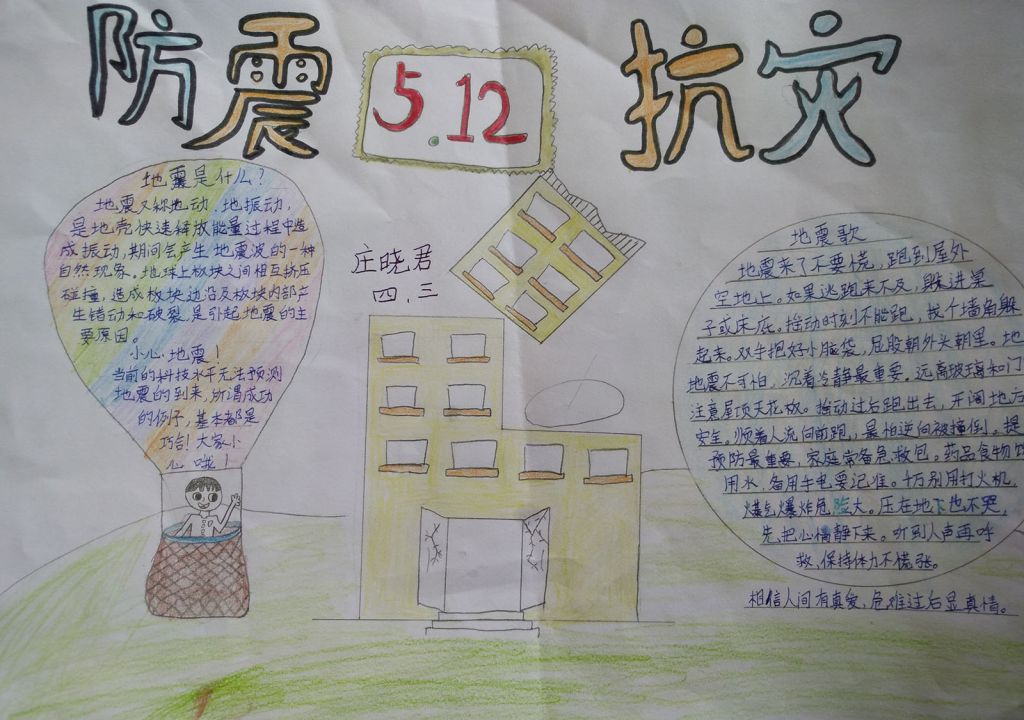 防震
5.12
抗灾
地震是什么？
地震又称地动、地振动，
是地壳快速释放能量过程中造
成振动，期间会产生地震波的一种
自然现象。地球上板块之间相互挤压
碰撞，造成板块边沿及板块内部产
生错动和破裂，是引起地震的主
要原因。
小心地震！
当前的科技水平无法预测
地震的到来，所谓成功
的例子，基本都是
巧合！大家小
心哦！
庄晓君
四.三
地震歌
地震来了不要慌，跑到屋外
空地上。如果逃跑来不及，躲进桌
子或床底。摇动时刻不能跑，找个墙角躲
起来。双手抱好小脑袋，屁股朝外头朝里。地
地震不可怕，沉着冷静最重要。远离玻璃和门
注意屋顶天花板。摇动过后跑出去，开阔地方
安全。顺着人流向前跑，最怕逆向被撞倒。提
预防最重要，家庭常备急救包。药品食物饮
用水，备用手电要记准。千万别用打火机，
爆炸危险大。压在地下也不哭，
先把心情静下来。听到人声再呼
救，保持体力不慌张。
相信人间有真爱，危难过后显真情。